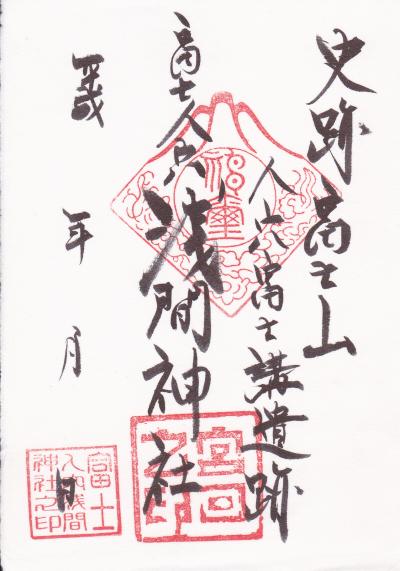 史跡 富士山
人穴富士講遺跡
富士人穴
浅間神社
平成
年
月
日
神璽
富士
人穴浅間
神社之印